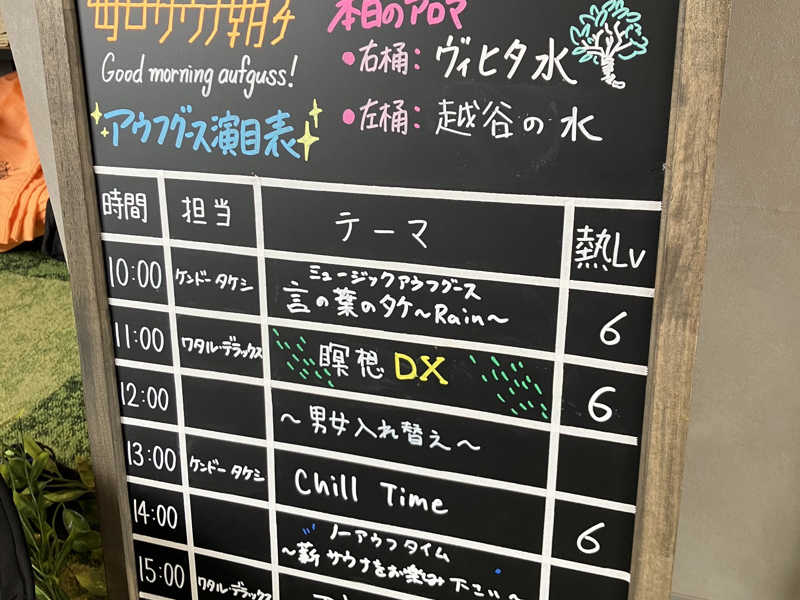 毎日サウナ朝子
Good morning aufguss!
アウフグース演目表
本日のアロマ
・右桶: ヴィヒタ水
・左桶: 越谷の水
時間 担当 テーマ 熱Lv
10:00 ケンドータケシ ミュージックアウフグース
言の葉のタケ〜Rain〜 6
11:00 ワタル・デラックス 瞑想DX 6
12:00 〜男女入れ替え〜
13:00 ケンドータケシ Chill Time 6
14:00 ノーアウフタイム
〜薪サウナをお楽み下さい〜
15:00 ワタル・デラックス